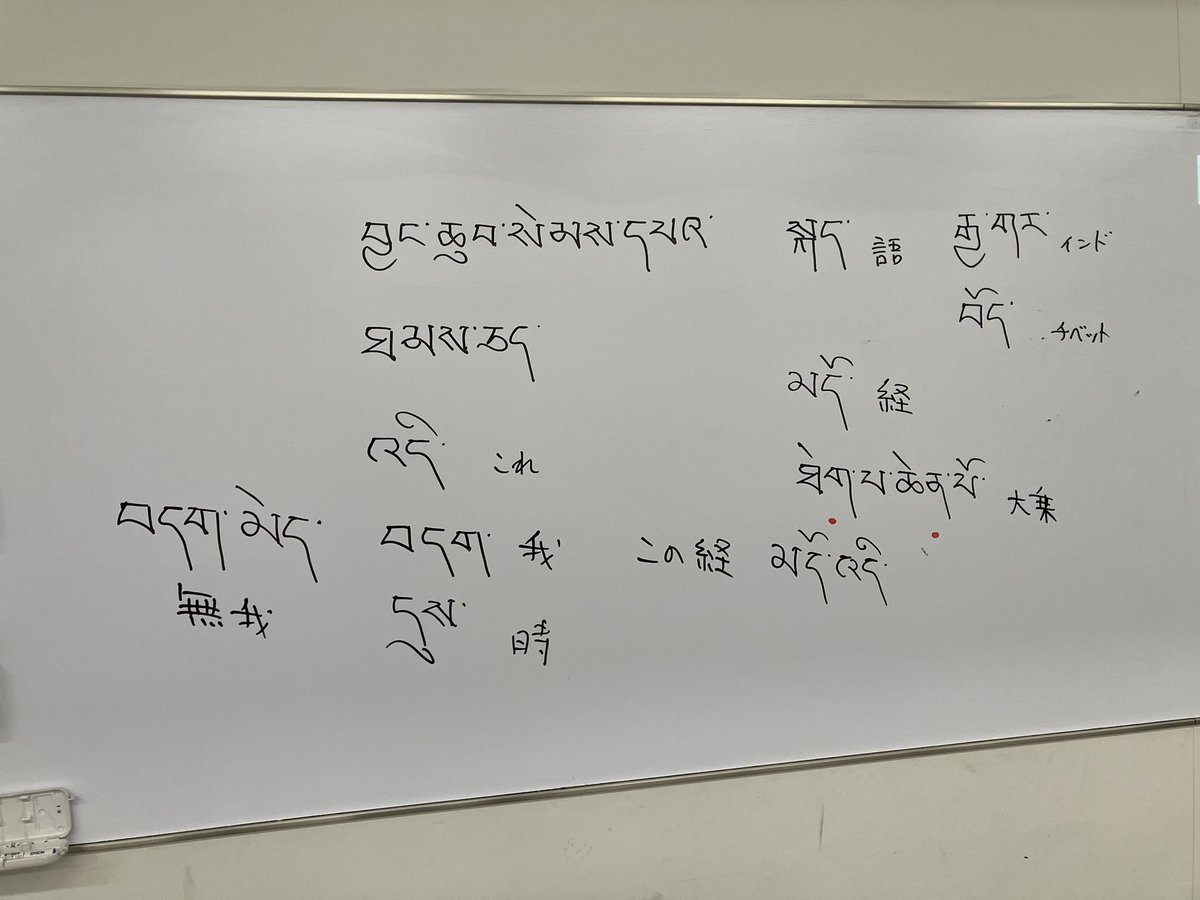 བྱང་ཆུབ་སེམས་དཔའ་ སྐད་ 語 རྒྱ་གར་ インド
བོད་ チベット
ཐམས་ཅད་
མདོ་ 経
འདི་ これ
ཐེག་པ་ཆེན་པོ་ 大乗
བདག་མེད་ བདག་ 我 この経 མདོ་འདི་
無我 དུས་ 時